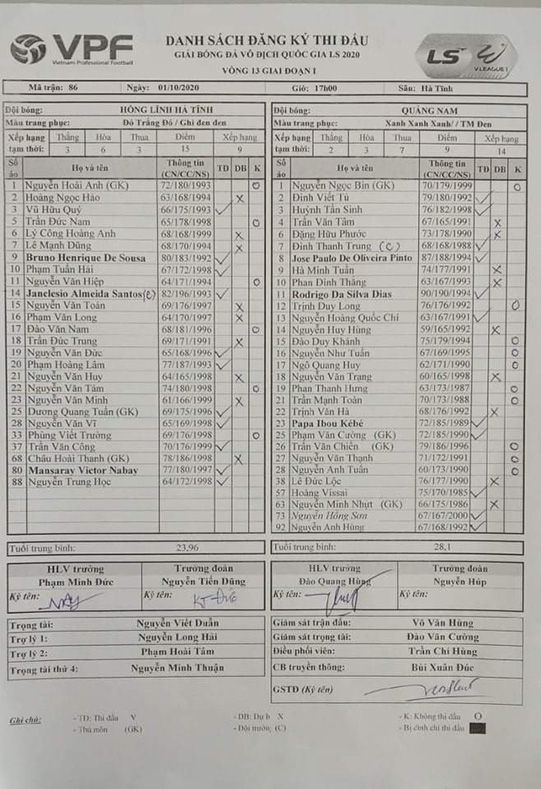 VPF
Vietnam Professional Football
DANH SÁCH ĐĂNG KÝ THI ĐẤU
GIẢI BÓNG ĐÁ VÔ ĐỊCH QUỐC GIA LS 2020
VÒNG 13 GIAI ĐOẠN I
LS
V.LEAGUE 1
Mã trận: 86 Ngày: 01/10/2020 Giờ: 17h00 Sân: Hà Tĩnh
Đội bóng: HỒNG LĨNH HÀ TĨNH
Màu trang phục: Đỏ Trắng Đỏ / Ghi đen đen
Xếp hạng tạm thời: Thắng Hòa Thua Điểm Xếp hạng
3 6 3 15 9
Số áo Họ và tên Thông tin (CN/CC/NS) TĐ DB K
1 Nguyễn Hoài Anh (GK) 72/180/1993 O
2 Hoàng Ngọc Hào 63/168/1994 X
3 Vũ Hữu Quý 66/175/1993 V
5 Trần Đức Nam 65/178/1998 O
6 Lý Công Hoàng Anh 68/168/1999 X
7 Lê Mạnh Dũng 68/170/1994 X
9 Bruno Henrique De Sousa 80/183/1992 V
10 Phạm Tuấn Hải 67/172/1998 V
11 Nguyễn Văn Hiệp 64/171/1994 O
14 Janclesio Almeida Santos (C) 82/196/1993 V
15 Nguyễn Văn Toản 69/176/1997 X
16 Phạm Văn Long 64/170/1997 X
17 Đào Văn Nam 68/181/1996 O
18 Trần Đức Trung 69/171/1991 X
19 Nguyễn Văn Đức 65/168/1996 V
20 Phạm Hoàng Lâm 77/187/1993 V
21 Nguyễn Văn Huy 64/165/1998 X
22 Nguyễn Văn Tám 74/180/1998 O
23 Nguyễn Văn Minh 61/166/1999 X
25 Dương Quang Tuấn (GK) 69/175/1996 V
28 Nguyễn Văn Vĩ 65/169/1998 V
33 Phùng Viết Trường 69/176/1998 O
37 Trần Văn Công 70/176/1999 V
68 Châu Hoài Thanh (GK) 78/186/1998 X
80 Mansaray Victor Nabay 77/180/1997 V
88 Nguyễn Trung Học 64/172/1998 V
Tuổi trung bình: 23,96
HLV trưởng Trưởng đoàn
Phạm Minh Đức Nguyễn Tiến Dũng
Ký tên: Ký tên:
Đội bóng: QUẢNG NAM
Màu trang phục: Xanh Xanh Xanh/ / TM Đen
Xếp hạng tạm thời: Thắng Hòa Thua Điểm Xếp hạng
2 3 7 9 14
Số áo Họ và tên Thông tin (CN/CC/NS) TĐ DB K
1 Nguyễn Ngọc Bin (GK) 70/179/1999 O
2 Đinh Viết Tú 79/180/1992 V
3 Huỳnh Tấn Sinh 76/182/1998 V
5 Trần Văn Tâm 67/165/1991 X
6 Đặng Hữu Phước 73/178/1990 X
7 Đinh Thanh Trung (C) 68/168/1988 V
8 Jose Paulo De Oliveira Pinto 87/188/1994 V
9 Hà Minh Tuấn 74/177/1991 X
10 Phan Đình Thắng 63/167/1993 X
11 Rodrigo Da Silva Dias 90/190/1994 V
12 Trịnh Duy Long 76/176/1992 O
13 Nguyễn Hoàng Quốc Chí 63/167/1991 V
14 Nguyễn Huy Hùng 59/165/1992 X
15 Đào Duy Khánh 75/179/1994 O
16 Nguyễn Như Tuấn 67/169/1995 O
17 Ngô Quang Huy 62/171/1990 O
18 Nguyễn Văn Trạng 60/165/1998 X
19 Phan Thanh Hưng 63/173/1987 O
21 Trần Mạnh Toàn 70/173/1988 O
22 Trịnh Văn Hà 68/176/1992 X
23 Papa Ibou Kébé 72/185/1989 V
25 Phạm Văn Cường (GK) 72/185/1990 V
26 Trần Văn Chiến (GK) 79/186/1996 O
27 Nguyễn Văn Thạnh 71/172/1991 O
28 Nguyễn Anh Tuấn 60/173/1990 O
38 Lê Đức Lộc 76/177/1990 X
57 Hoàng Vissai 75/170/1985 V
63 Nguyễn Minh Nhựt (GK) 66/175/1986 X
73 Nguyễn Hồng Sơn 67/167/2000 V
92 Nguyễn Anh Hùng 67/168/1992 V
Tuổi trung bình: 28,1
HLV trưởng Trưởng đoàn
Đào Quang Hùng Nguyễn Húp
Ký tên: Ký tên:
Trọng tài: Nguyễn Viết Duẩn
Trợ lý 1: Nguyễn Long Hải
Trợ lý 2: Phạm Hoài Tâm
Trọng tài thứ 4: Nguyễn Minh Thuận
Giám sát trận đấu: Võ Văn Hùng
Giám sát trọng tài: Đào Văn Cường
Điều phối viên: Trần Chí Hùng
CB truyền thông: Bùi Xuân Đức
GSTĐ (Ký tên)
Ghi chú: - TĐ: Thi đấu V - DB: Dự bị X - K: Không thi đấu O
- Thủ môn (GK) - Đội trưởng (C) - Bị đình chỉ thi đấu